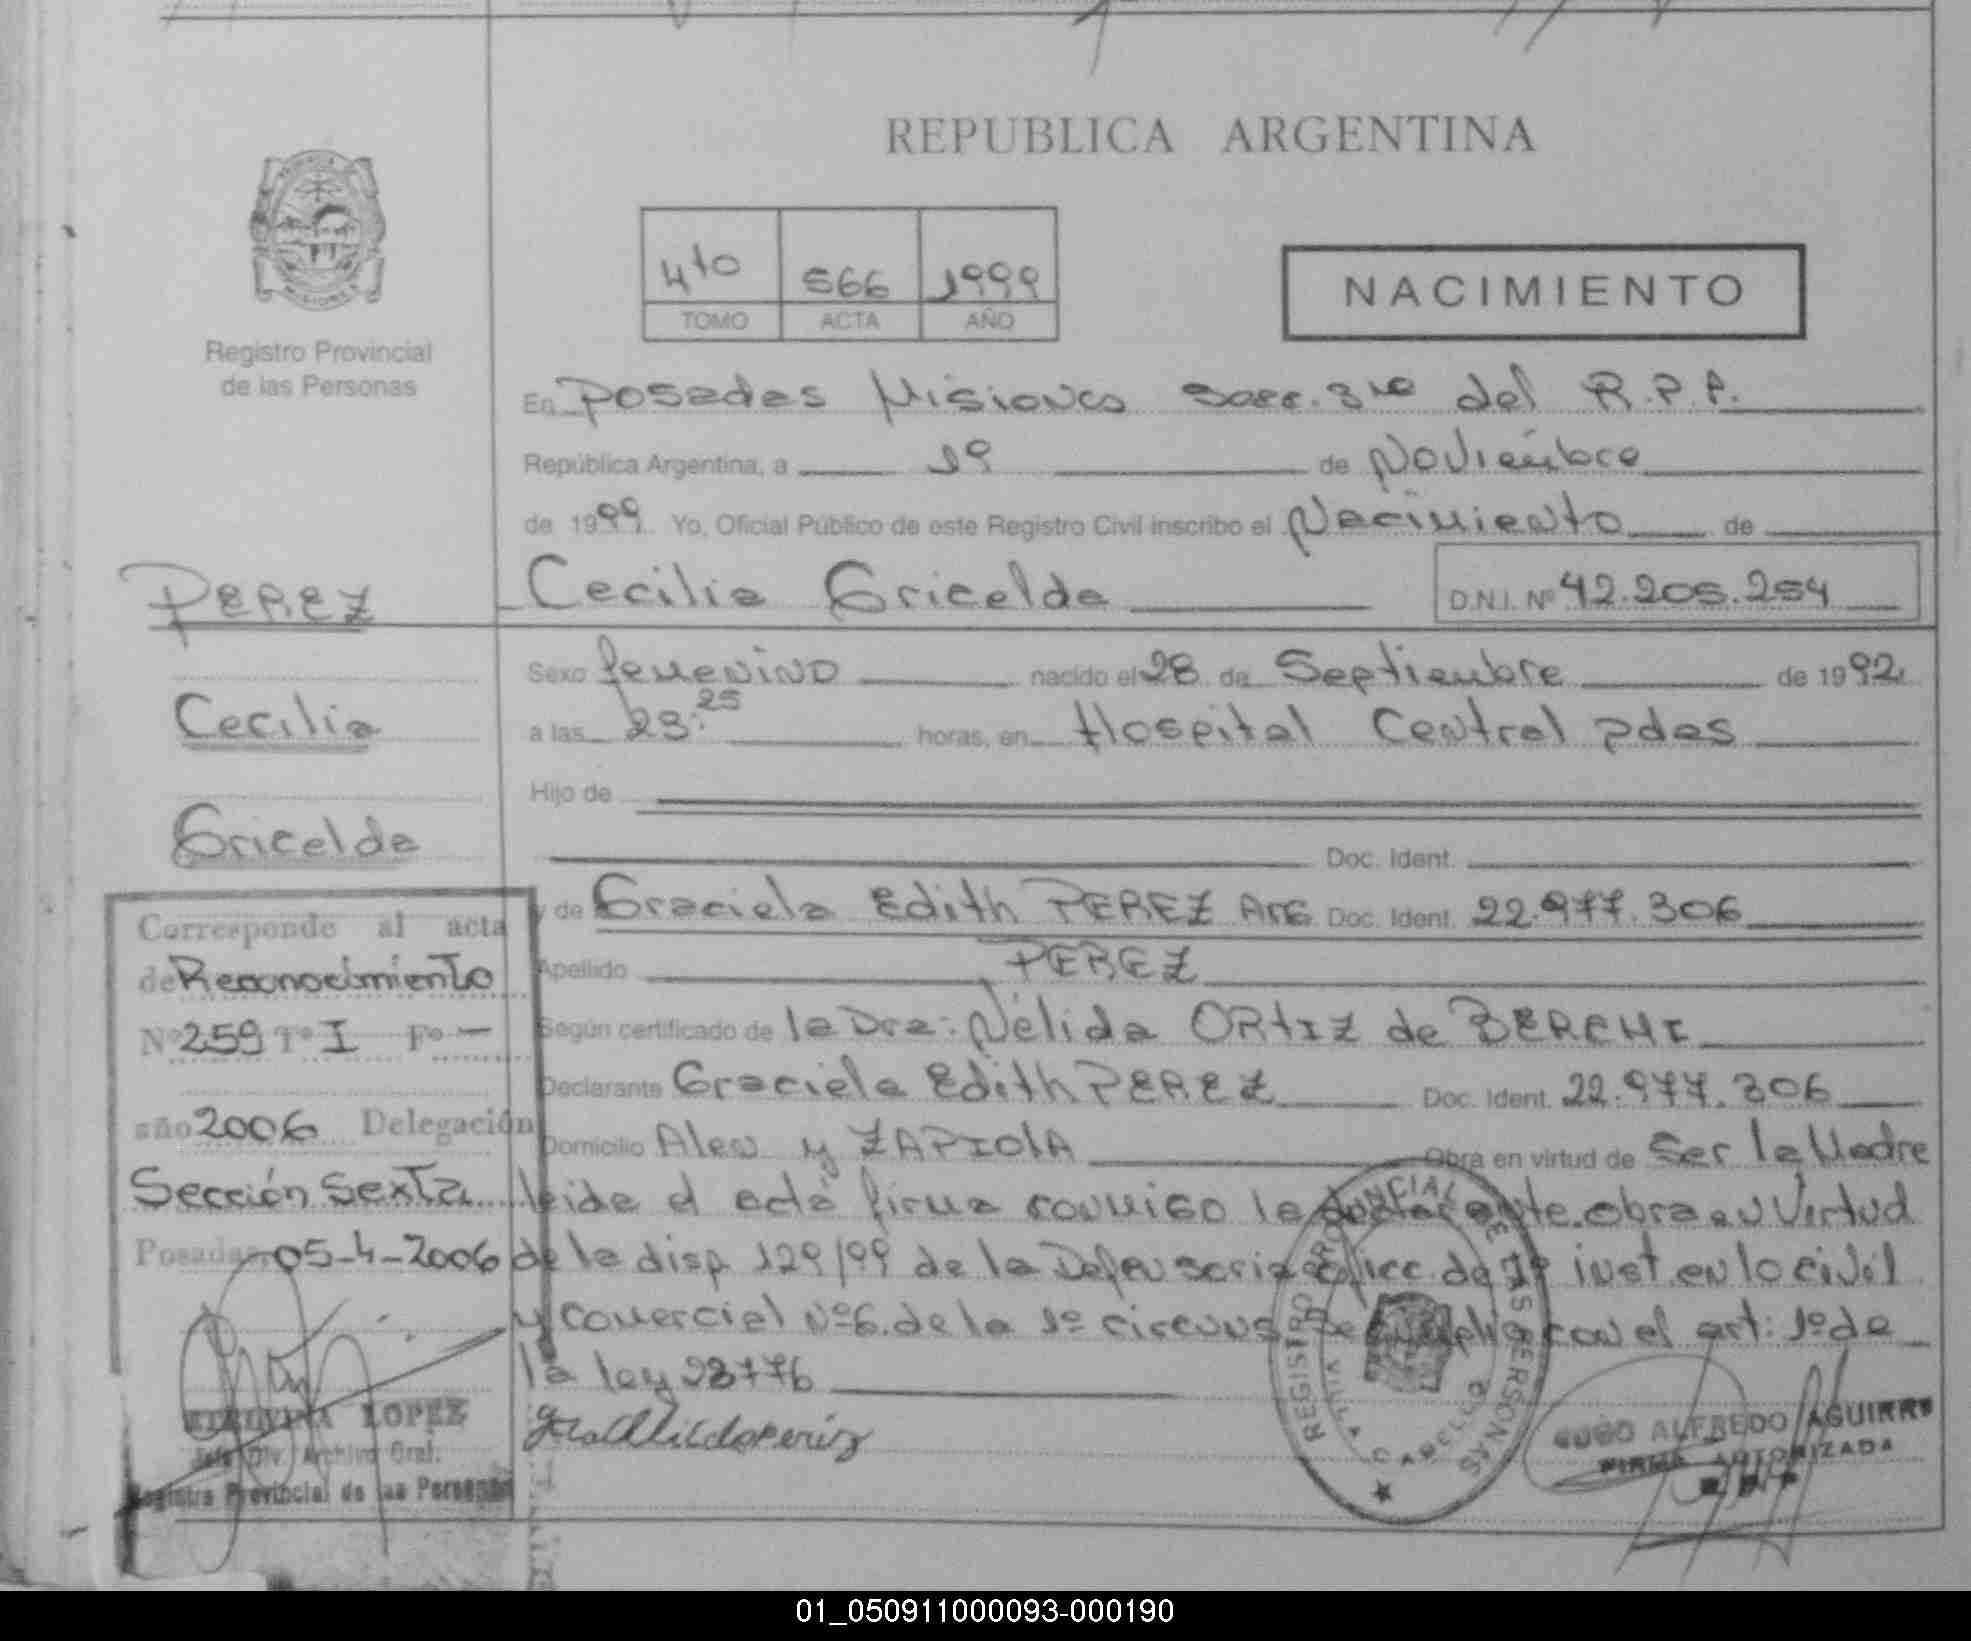 REPUBLICA ARGENTINA
4to 566 1999
TOMO ACTA AÑO
NACIMIENTO
MISIONES
Registro Provincial
de las Personas
En Posadas Misiones Secc. 3ra del R.P.P.
República Argentina, a 19 de Noviembre
de 1999. Yo, Oficial Público de este Registro Civil inscribo el Nacimiento de
PEREZ
Cecilia Gricelda D.N.I. Nº 42.205.254
Sexo femenino nacido el 28 de Septiembre de 1992
Cecilia
a las 23:25 horas, en Hospital Central pdas
Hijo de
Gricelda
Doc. Ident.
y de Graciela Edith PEREZ ARG Doc. Ident. 22.977.306
Apellido PEREZ
Según certificado de la Dra: Nélida ORTIZ de BERCHI
Declarante Graciela Edith PEREZ Doc. Ident. 22.977.306
Domicilio Alem y ZAPIOLA Obra en virtud de Ser la Madre
leida el acta firma conmigo la declarante. obra en Virtud
de la disp 129/99 de la Defensoria ofic. de 1º inst en lo civil
y comercial Nº6. de la 1º circuns. con el art: 1º de
la ley 23776
Corresponde al acta
de Reconocimiento
Nº 259 Tº I Fº -
año 2006 Delegación
Sección Sexta
Posadas, 05-4-2006
LOPEZ
Jefe Div. Archivo Gral.
Registro Provincial de las Personas
REGISTRO PROVINCIAL DE LAS PERSONAS
VILLA CABELLO
HUGO ALFREDO AGUIRRE
FIRMA AUTORIZADA
01_050911000093-000190